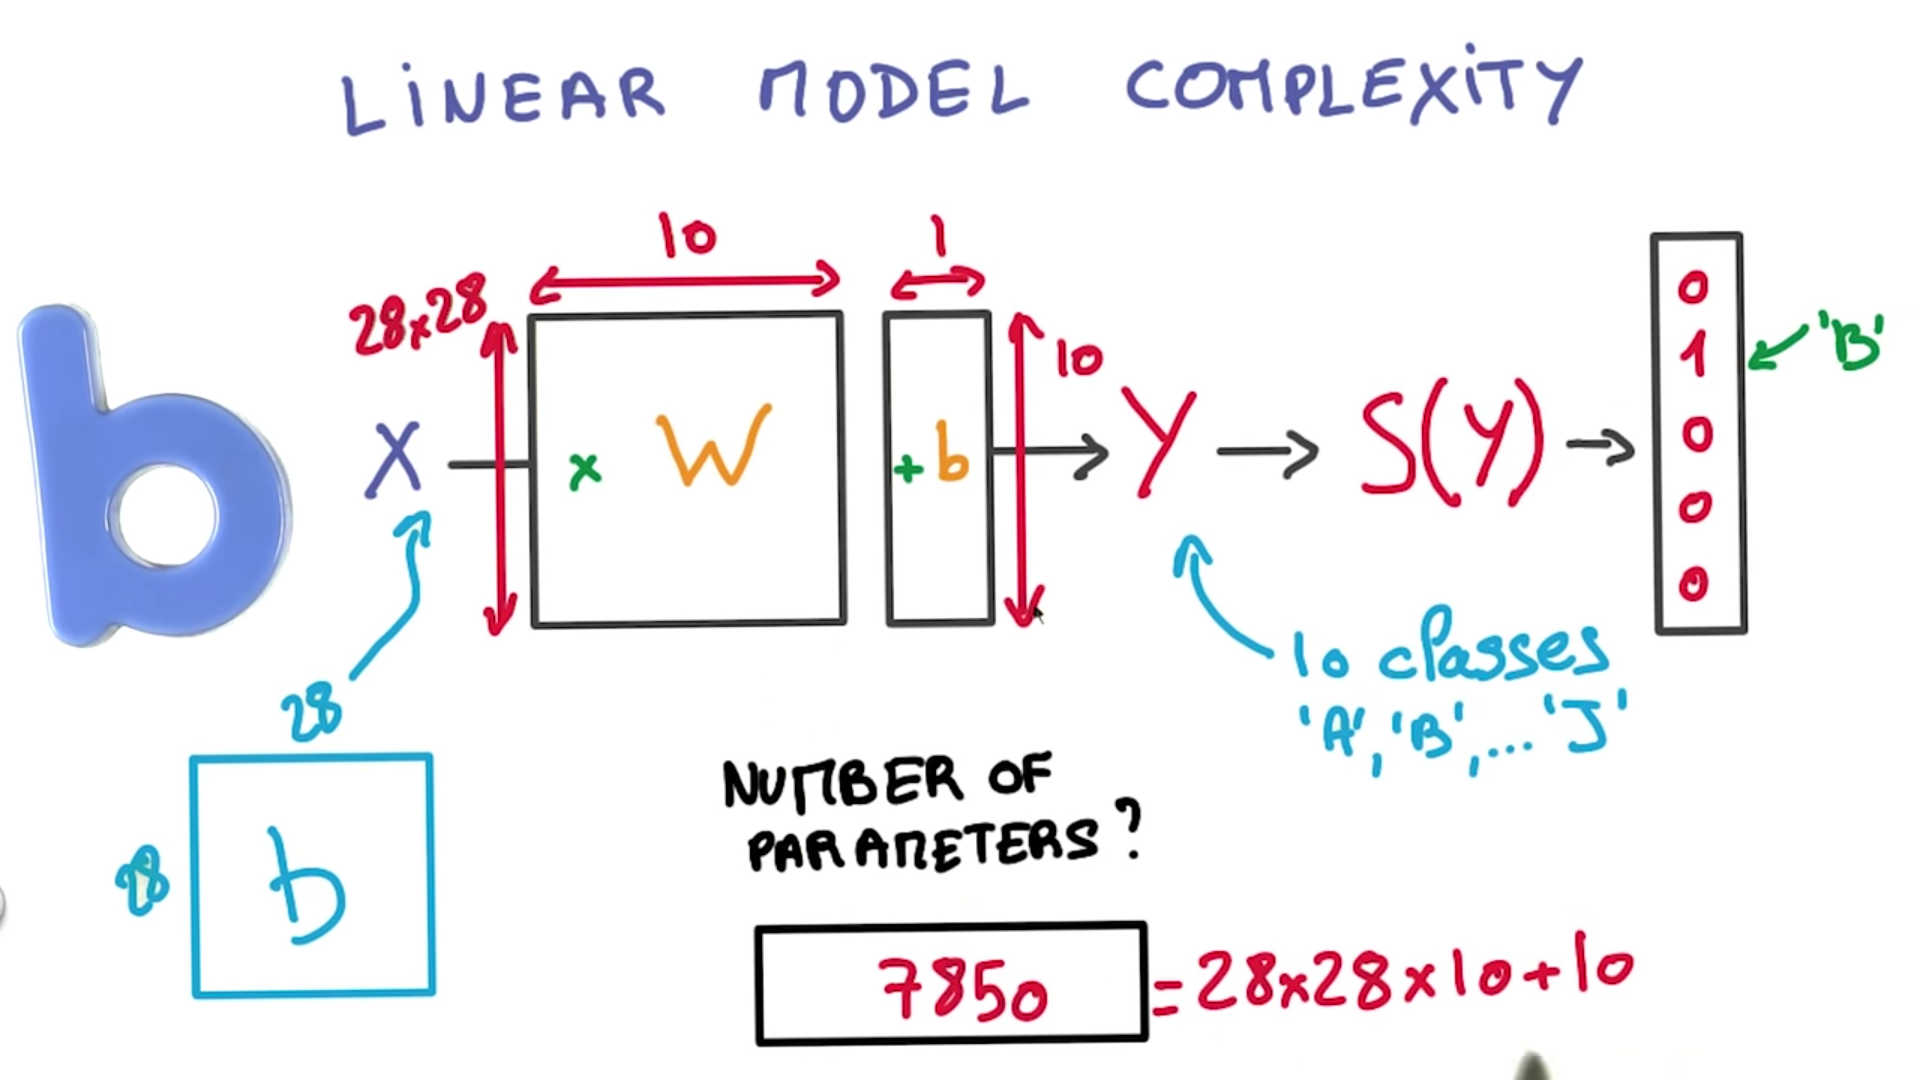 LINEAR MODEL COMPLEXITY
10
1
28x28
10
b
X
x W
+ b
Y
S(Y)
0
1
0
0
0
'B'
28
28
b
10 classes
'A', 'B', ... 'J'
NUMBER OF
PARAMETERS?
7850 = 28x28x10+10